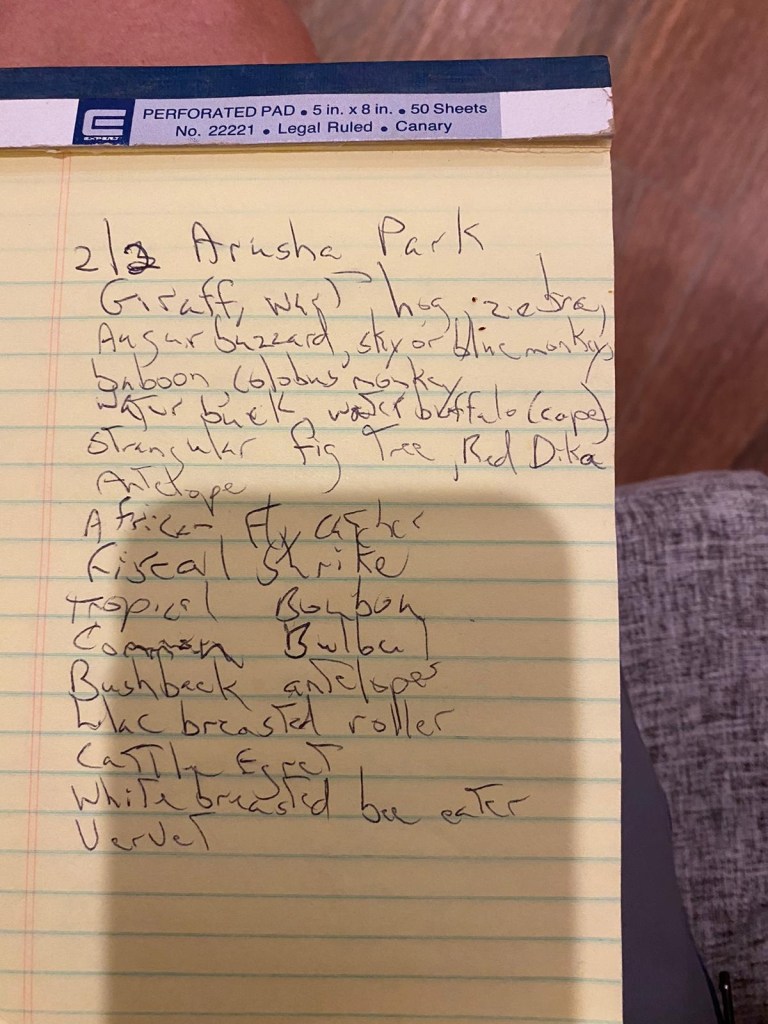 PERFORATED PAD • 5 in. x 8 in. • 50 Sheets
No. 22221 • Legal Ruled • Canary
2/2 Arusha Park
Giraff, wart hog, zebra,
Augur buzzard, sky or blue monkeys
baboon, Colobus monkey
water buck, water buffalo (cape)
Strangular fig Tree, Red Dika
Antelope
African Fly catcher
Fiscall Shrike
Tropical Boubou
Common Bulbul
Bushback antelopes
Lilac breasted roller
Cattle Egret
White breasted bee eater
Vervet